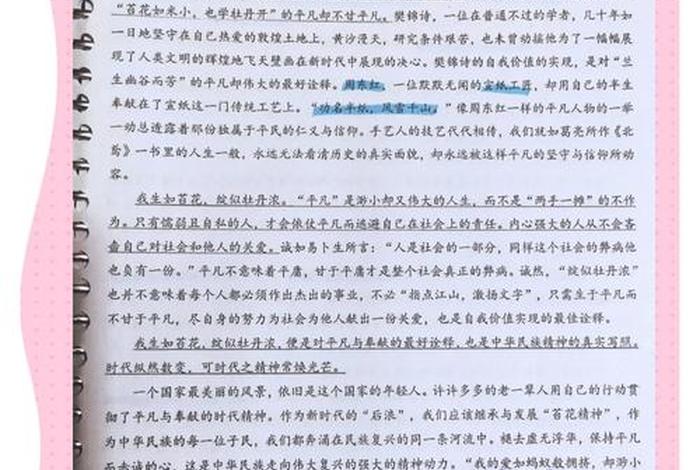 “苔花如米小，也学牡丹开”的平凡却不甘平凡。樊锦诗，一位在普通不过的学者，几十年如
一日地坚守在自己热爱的敦煌土地上，黄沙漫天，研究条件艰苦，也未曾动摇他为了一幅幅展
现了人类文明的辉煌地飞天壁画在新时代中展现的决心。樊锦诗的自我价值的实现，是对“兰
生幽谷而芳”的平凡却伟大的最好诠释。周东红，一位默默无闻的宣纸工匠，却用自己的半生
奉献在了宣纸这一门传统工艺上。“功名半纸，风雪千山。”像周东红一样的平凡人物的一举
一动总透露着那份独属于平民的仁义与信仰。手艺人的技艺代代相传，我们就如葛亮所作《北
鸢》一书里的人生一般，永远无法看清历史的真实面貌，却永远被这样平凡的坚守与信仰所动
容。
我生如苔花，绽似牡丹浓。“平凡”是渺小却又伟大的人生，而不是“两手一摊”的不作
为。只有懦弱且自私的人，才会依仗平凡而逃避自己在社会上的责任。内心强大的人从不会吝
啬自己对社会和他人的关爱。诚如易卜生所言：“人是社会的一部分，同样这个社会的弊病他
也负有一份。”平凡不意味着平庸，甘于平庸才是整个社会真正的弊病。诚然，“绽似牡丹浓”
也并不意味着每个人都必须作出杰出的事业，不必“指点江山，激扬文字”，只需生于平凡而
不甘于平凡，尽自身的努力为社会为他人献出一份关爱，也是自我价值实现的最佳诠释。
我生如苔花，绽似牡丹浓，便是对平凡与奉献的最好诠释，也是中华民族精神的真实写照。
时代纵然数变，可时代之精神常焕光芒。
一个国家最美丽的风景，依旧是这个国家的年轻人。许许多多的老一辈人用自己的行动贯
彻了平凡与奉献的时代精神。作为新时代的“后浪”，我们应该继承与发展“苔花精神”，作
为中华民族的每一位子民，我们都奔涌在民族复兴的同一条河流中。褪去虚无浮华，保持平凡
而赤诚的心，这是中华民族走向伟大复兴的强大的精神动力。“我的爱如蚂蚁般拥挤，却渺小